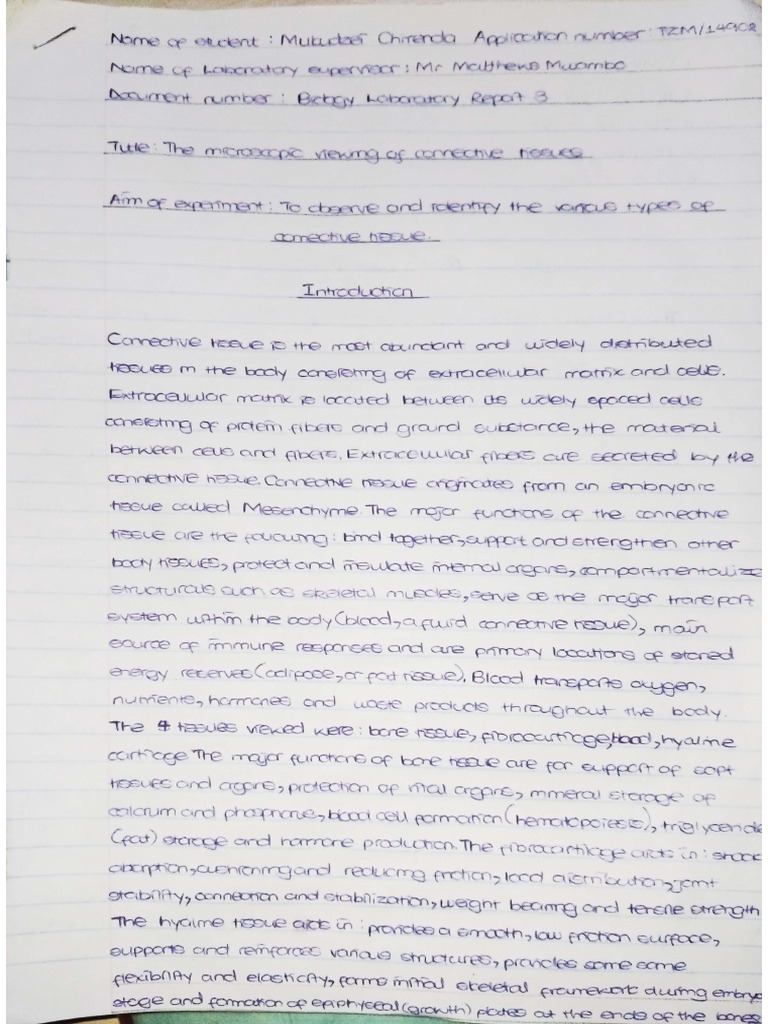 Name of student : Mukudzei Chirenda Application number : TZM/14902
Name of Laboratory supervisor : Mr Matthews Mwambo
Document number : Biology Laboratory Report 3
Title : The microscopic viewing of connective tissues
Aim of experiment : To observe and identify the various types of
connective tissue.
Introduction
Connective tissue is the most abundant and widely distributed
tissues in the body consisting of extracellular matrix and cells.
Extracellular matrix is located between its widely spaced cells
consisting of protein fibers and ground substance, the material
between cells and fibers. Extracellular fibers are secreted by the
connective tissue. Connective tissue originates from an embryonic
tissue called Mesenchyme. The major functions of the connective
tissue are the following : bind together, support and strengthen other
body tissues, protect and insulate internal organs, compartmentalize
structurals such as skeletal muscles, serve as the major transport
system within the body (blood, a fluid connective tissue), main
source of immune responses and are primary locations of stored
energy reserves (adipose, or fat tissue). Blood transports oxygen,
nutrients, hormones and waste products throughout the body.
The 4 tissues viewed were : bone tissue, fibrocartilage, blood, hyaline
cartilage. The major functions of bone tissue are for support of soft
tissues and organs, protection of vital organs, mineral storage of
calcium and phosphorus, blood cell formation (hematopoiesis), triglyceride
(fat) storage and hormone production. The fibrocartilage aids in : shock
absorption, cushioning and reducing friction, load distribution, joint
stability, connection and stabilization, weight bearing and tensile strength
The hyaline tissue aids in : provides a smooth, low friction surface,
supports and reinforces various structures, provides some some
flexibility and elasticity, forms initial skeletal framework during embryo
stage and formation of epiphyseal (growth) plates at the ends of the bones